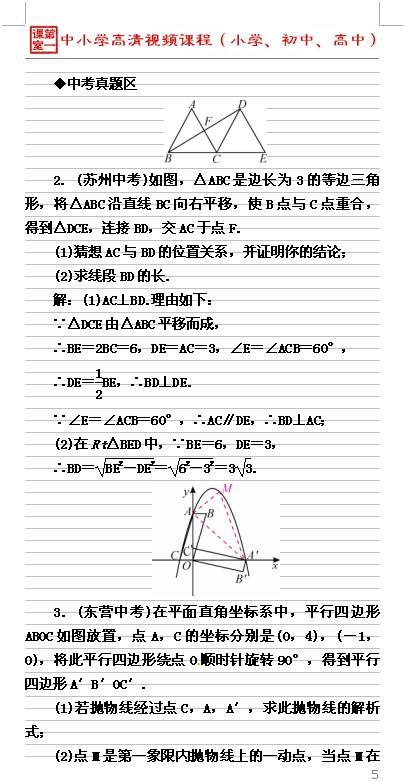 课第
室一
中小学高清视频课程（小学、初中、高中）
◆中考真题区
A
D
F
B
C
E
2. (苏州中考)如图，△ABC是边长为3的等边三角
形，将△ABC沿直线BC向右平移，使B点与C点重合，
得到△DCE，连接BD，交AC于点F.
(1)猜想AC与BD的位置关系，并证明你的结论；
(2)求线段BD的长.
解：(1)AC⊥BD.理由如下：
∵△DCE由△ABC平移而成，
∴BE=2BC=6，DE=AC=3，∠E=∠ACB=60°，
∴DE=1/2BE，∴BD⊥DE.
∵∠E=∠ACB=60°，∴AC∥DE，∴BD⊥AC；
(2)在Rt△BED中，∵BE=6，DE=3，
∴BD=√(BE²-DE²)=√(6²-3²)=3√3.
y
M
A
B
C
C′
O
A′
B′
x
3. (东营中考)在平面直角坐标系中，平行四边形
ABOC如图放置，点A，C的坐标分别是(0，4)，(-1，
0)，将此平行四边形绕点O顺时针旋转90°，得到平行
四边形A′B′OC′.
(1)若抛物线经过点C，A，A′，求此抛物线的解析
式；
(2)点M是第一象限内抛物线上的一动点，当点M在
5